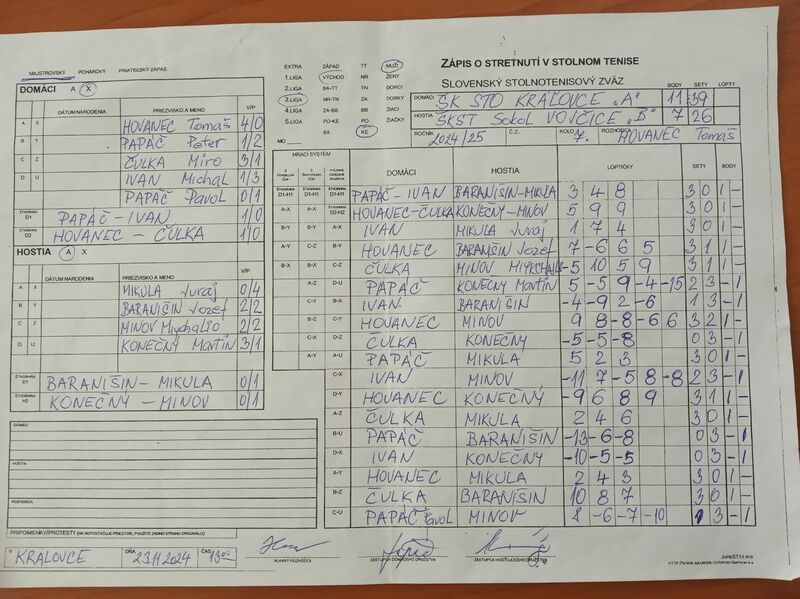 ZÁPIS O STRETNUTÍ V STOLNOM TENISE
SLOVENSKÝ STOLNOTENISOVÝ ZVÄZ
MAJSTROVSKÝ POHÁROVÝ PRIATEĽSKÝ ZÁPAS
EXTRA ZÁPAD TT MUŽI
1.LIGA VÝCHOD NR ŽENY
2.LIGA BA-TT TN DORCI
3.LIGA NR-TN ZA DORKY
4.LIGA ZA-BB BB ŽIACI
5.LIGA PO-KE PO ŽIAČKY
BA KE
MO
BODY SETY LOPTY
DOMÁCI ŠK STO KRÁĽOVCE "A" 11 39
HOSTIA ŠKST SOKOL VOJČICE "B" 7 26
ROČNÍK 2024/25 Č.Z. KOLO 7. ROZHODCA HOVANEC Tomáš
DOMÁCI A X
DÁTUM NARODENIA PRIEZVISKO A MENO V/P
A X HOVANEC Tomáš 4/0
B Y PAPÁČ Peter 1/2
C Z ČULKA Miro 3/1
D U IVAN Michal 1/3
PAPÁČ Pavol 0/1
ŠTVORHRA D1 PAPÁČ-IVAN 1/0
ŠTVORHRA D2 HOVANEC - ČULKA 1/0
HOSTIA A X
DÁTUM NARODENIA PRIEZVISKO A MENO V/P
A X MIKULA Juraj 0/4
B Y BARANIŠIN Jozef 2/2
C Z MINOV Miychailo 2/2
D U KONEČNÝ Martin 3/1
ŠTVORHRA D1 BARANIŠIN - MIKULA 0/1
ŠTVORHRA H2 KONEČNÝ - MINOV 0/1
HRACÍ SYSTÉM DOMÁCI HOSTIA LOPTIČKY SETY BODY
D1-H1 D1-H1 D1-H1 PAPÁČ-IVAN BARANIŠIN-MIKULA 3 4 8 3 0 1 -
A-X A-X D2-H2 HOVANEC-ČULKA KONEČNÝ-MINOV 5 9 9 3 0 1 -
B-Y B-Y A-X IVAN MIKULA Juraj 1 7 4 3 0 1 -
A-Y C-Z B-Y HOVANEC BARANIŠIN Jozef 7 -6 6 5 3 1 1 -
B-X B-X C-Z ČULKA MINOV MIYKCHAILO -5 10 5 9 3 1 1 -
A-Z D-U PAPÁČ KONEČNÝ Martin 5 -5 9 -4 -15 2 3 - 1
C-Y B-X IVAN BARANIŠIN -4 -9 2 -6 1 3 - 1
B-Z C-Y HOVANEC MINOV 9 8 -8 -6 6 3 2 1 -
C-X D-Z ČULKA KONEČNÝ -5 -5 -8 0 3 - 1
A-Y A-U PAPÁČ MIKULA 5 2 3 3 0 1 -
C-X IVAN MINOV -11 7 -5 8 -8 2 3 - 1
D-Y HOVANEC KONEČNÝ -9 6 8 9 3 1 1 -
A-Z ČULKA MIKULA 2 4 6 3 0 1 -
B-U PAPÁČ BARANIŠIN -13 -6 -8 0 3 - 1
D-X IVAN KONEČNÝ -10 -5 -5 0 3 - 1
A-Y HOVANEC MIKULA 2 4 3 3 0 1 -
B-Z ČULKA BARANIŠIN 10 8 7 3 0 1 -
C-U PAPÁČ Pavol MINOV 8 -6 -7 -10 1 3 - 1
DOMÁCI
HOSTIA
ROZHODCA
PRIPOMIENKY/PROTESTY (AK NEPOSTAČUJE PRIESTOR, POUŽITE ZADNÚ STRANU ORIGINÁLU)
V KRAĽOVCE DŇA 23.11.2024 ČAS 13:00
HLAVNÝ ROZHODCA ZÁSTUPCA DOMÁCEHO DRUŽSTVA ZÁSTUPCA HOSŤUJÚCEHO DRUŽSTVA